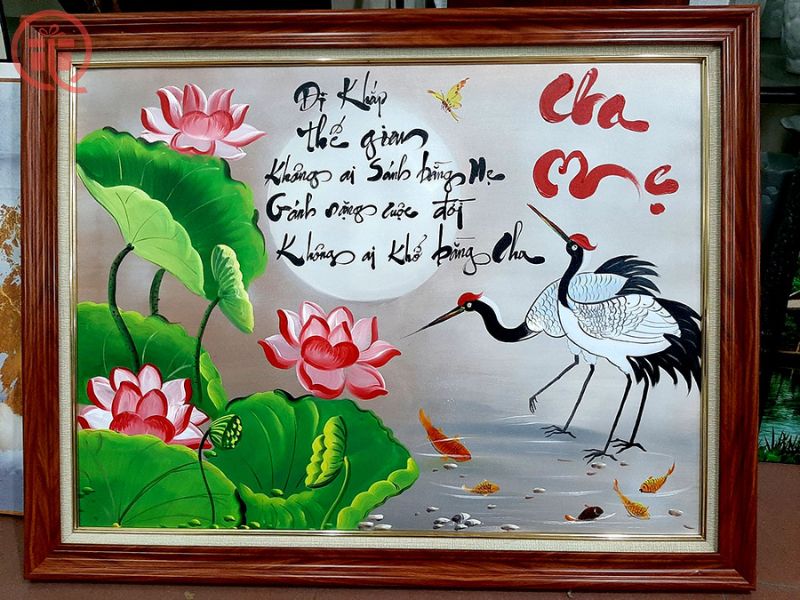 Đi Khắp
thế gian
Không ai Sánh bằng Mẹ
Gánh nặng cuộc đời
Không ai khổ bằng Cha
Cha
Mẹ